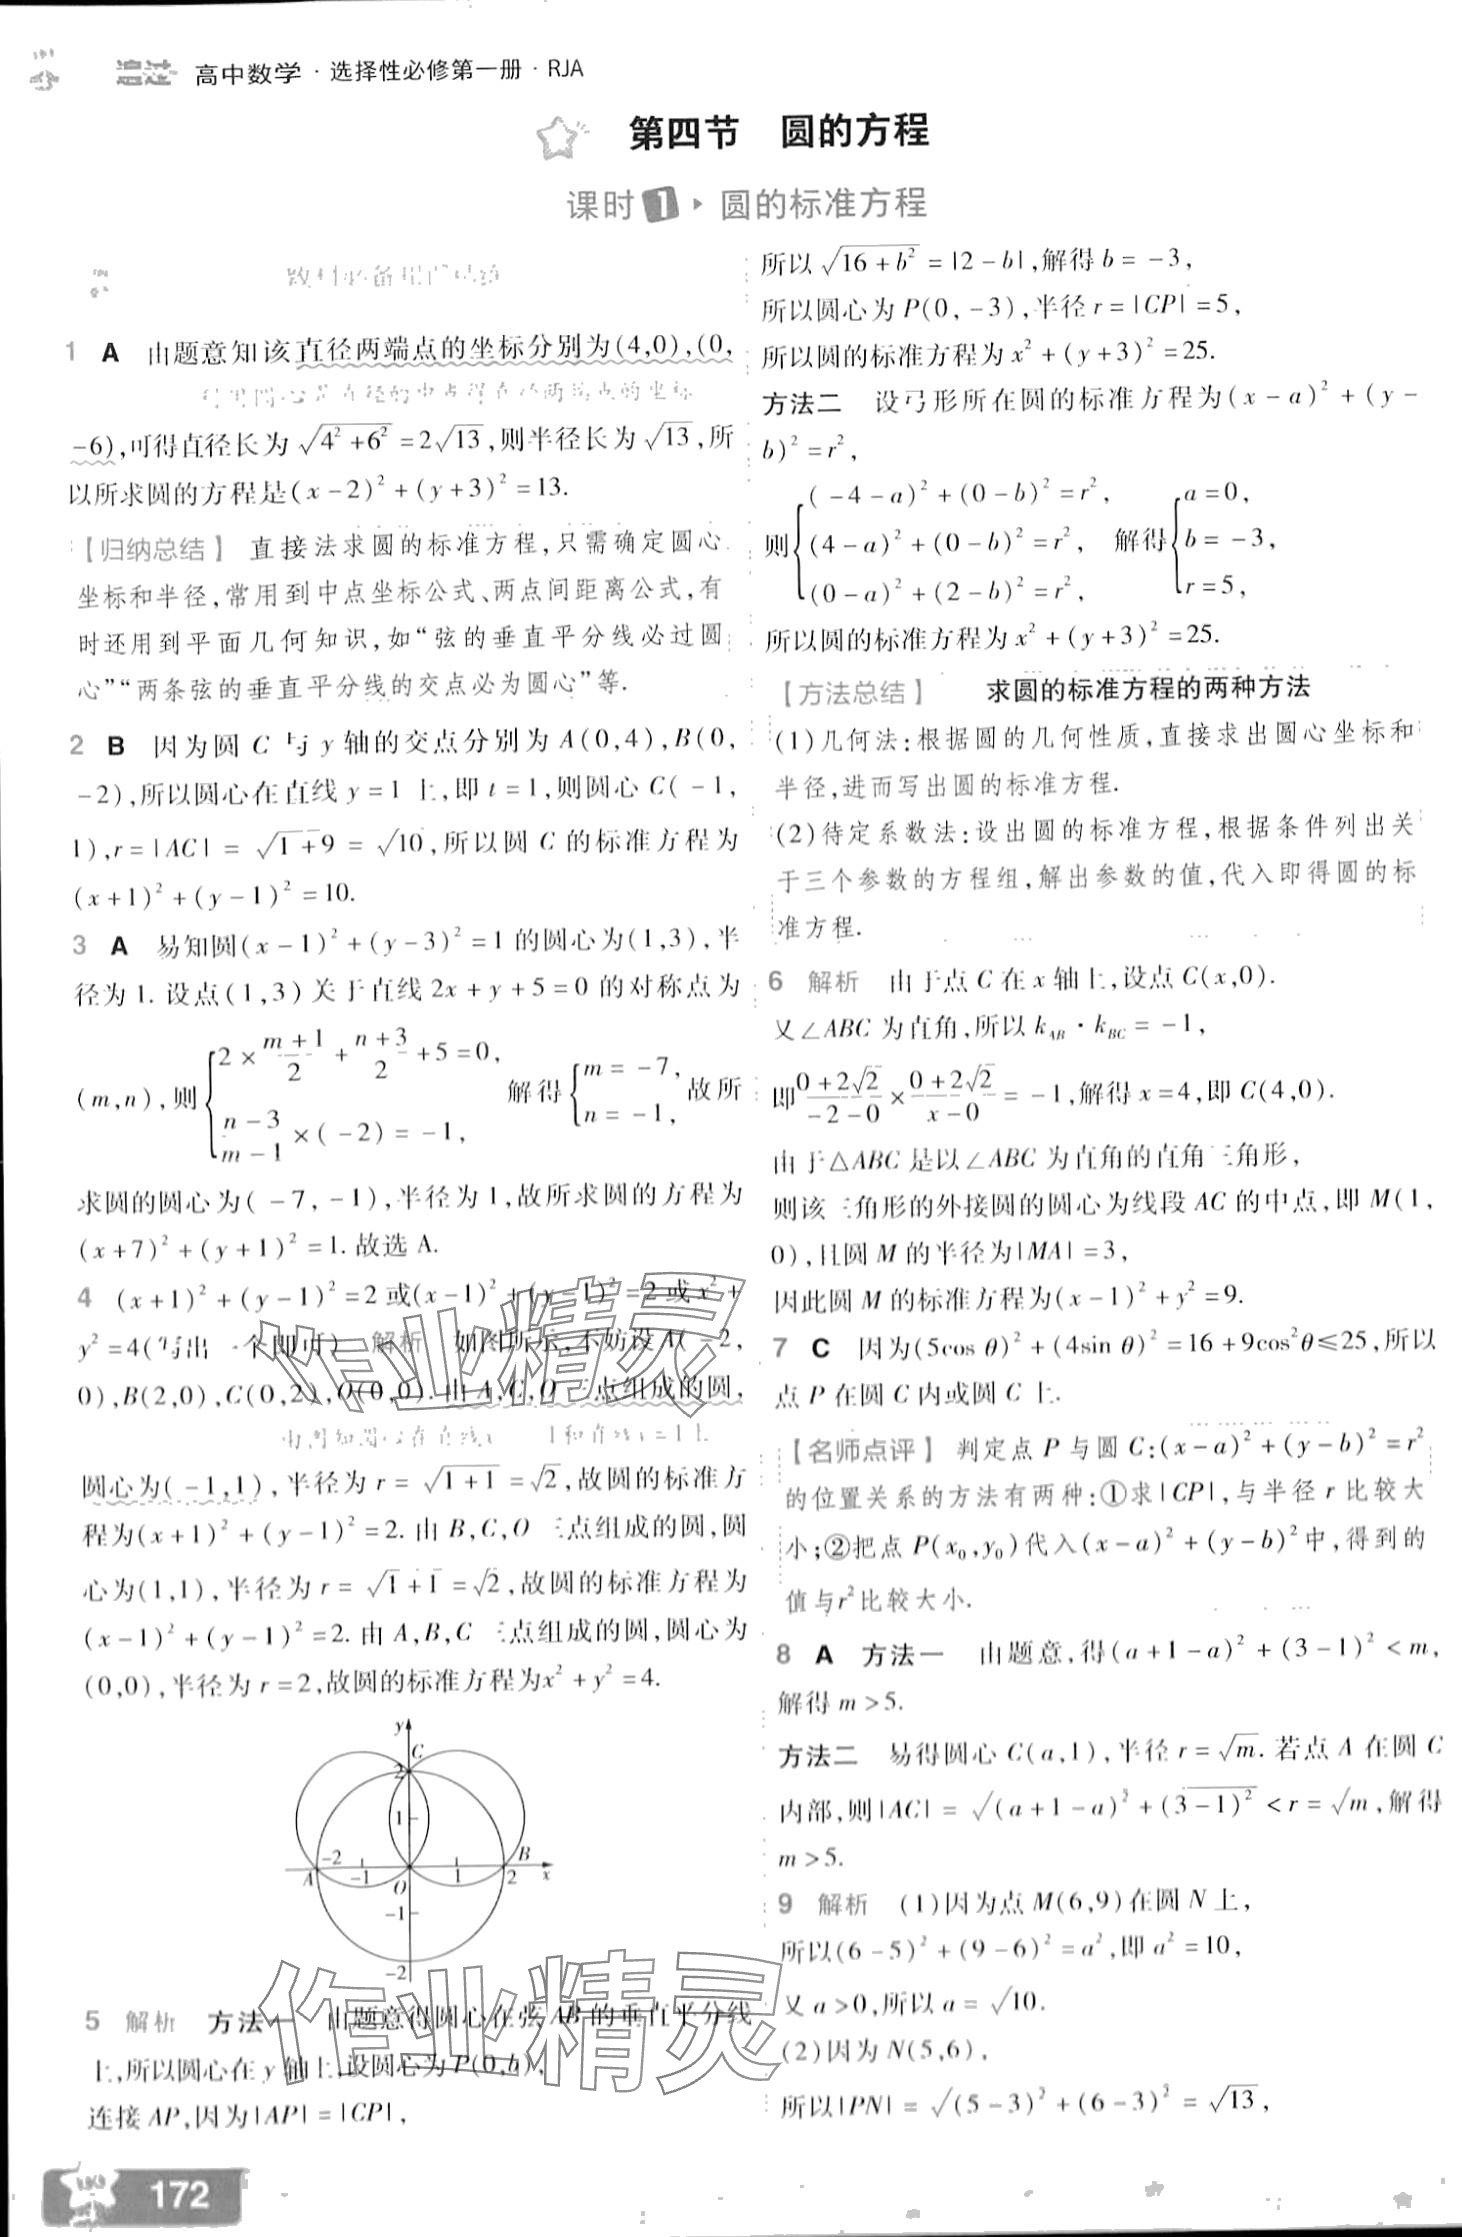 高中数学·选择性必修第一册·RJA
第四节 圆的方程
课时1 圆的标准方程
1 A 由题意知该直径两端点的坐标分别为(4,0),(0,
-6),可得直径长为√(4²+6²)=2√13,则半径长为√13,所
以所求圆的方程是(x-2)²+(y+3)²=13.
【归纳总结】 直接法求圆的标准方程,只需确定圆心
坐标和半径,常用到中点坐标公式、两点间距离公式,有
时还用到平面几何知识,如“弦的垂直平分线必过圆
心”“两条弦的垂直平分线的交点必为圆心”等.
2 B 因为圆 C 与 y 轴的交点分别为 A(0,4),B(0,
-2),所以圆心在直线 y=1 上,即 t=1,则圆心 C(-1,
1),r=|AC|=√(1+9)=√10,所以圆 C 的标准方程为
(x+1)²+(y-1)²=10.
3 A 易知圆(x-1)²+(y-3)²=1 的圆心为(1,3),半
径为1.设点(1,3)关于直线 2x+y+5=0 的对称点为
(m,n),则{2×(m+1)/2+(n+3)/2+5=0, (n-3)/(m-1)×(-2)=-1, 解得{m=-7, n=-1, 故所
求圆的圆心为(-7,-1),半径为1,故所求圆的方程为
(x+7)²+(y+1)²=1.故选 A.
4 (x+1)²+(y-1)²=2 或(x-1)²+(y-1)²=2 或 x²+
y²=4(写出一个即可) 解析 如图所示,不妨设 A(-2,
0),B(2,0),C(0,2),O(0,0).由 A,C,O 三点组成的圆,
圆心为(-1,1),半径为 r=√(1+1)=√2,故圆的标准方
程为(x+1)²+(y-1)²=2.由 B,C,O 三点组成的圆,圆
心为(1,1),半径为 r=√(1+1)=√2,故圆的标准方程为
(x-1)²+(y-1)²=2.由 A,B,C 三点组成的圆,圆心为
(0,0),半径为 r=2,故圆的标准方程为x²+y²=4.
y
C
2
1
-2
-1
A
O
1
2
B
x
-1
-2
5 解析 方法一 由题意得圆心在弦 AB 的垂直平分线
上,所以圆心在 y 轴上,设圆心为 P(0,b),
连接 AP,因为|AP|=|CP|,
172
所以√(16+b²)=|2-b|,解得 b=-3,
所以圆心为 P(0,-3),半径 r=|CP|=5,
所以圆的标准方程为 x²+(y+3)²=25.
方法二 设弓形所在圆的标准方程为(x-a)²+(y-
b)²=r²,
则{(-4-a)²+(0-b)²=r², (4-a)²+(0-b)²=r², (0-a)²+(2-b)²=r², 解得{a=0, b=-3, r=5,
所以圆的标准方程为 x²+(y+3)²=25.
【方法总结】 求圆的标准方程的两种方法
(1)几何法:根据圆的几何性质,直接求出圆心坐标和
半径,进而写出圆的标准方程.
(2)待定系数法:设出圆的标准方程,根据条件列出关
于三个参数的方程组,解出参数的值,代入即得圆的标
准方程.
6 解析 由于点 C 在 x 轴上,设点 C(x,0).
又∠ABC 为直角,所以 k_AB·k_BC=-1,
即(0+2√2)/(-2-0)×(0+2√2)/(x-0)=-1,解得 x=4,即 C(4,0).
由于△ABC 是以∠ABC 为直角的直角三角形,
则该三角形的外接圆的圆心为线段 AC 的中点,即 M(1,
0),且圆 M 的半径为|MA|=3,
因此圆 M 的标准方程为(x-1)²+y²=9.
7 C 因为(5cos θ)²+(4sin θ)²=16+9cos²θ≤25,所以
点 P 在圆 C 内或圆 C 上.
【名师点评】 判定点 P 与圆 C:(x-a)²+(y-b)²=r²
的位置关系的方法有两种:①求|CP|,与半径 r 比较大
小;②把点 P(x₀,y₀)代入(x-a)²+(y-b)²中,得到的
值与r²比较大小.
8 A 方法一 由题意,得(a+1-a)²+(3-1)²<m,
解得 m>5.
方法二 易得圆心 C(a,1),半径 r=√m.若点 A 在圆 C
内部,则|AC|=√((a+1-a)²+(3-1)²)<r=√m,解得
m>5.
9 解析 (1)因为点 M(6,9)在圆 N 上,
所以(6-5)²+(9-6)²=a²,即 a²=10,
又 a>0,所以 a=√10.
(2)因为 N(5,6),
所以|PN|=√((5-3)²+(6-3)²)=√13,
作业精灵
作业精灵